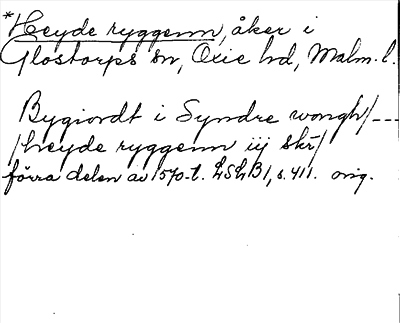 *Heyde ryggenn, åker i
Glostorps sn, Oxie hd, Malm. l.
Bygiordt i Syndre wongh/---
/heyde ryggenn iij skr/
förra delen av 1570-t. LSLB1, s. 411. orig.